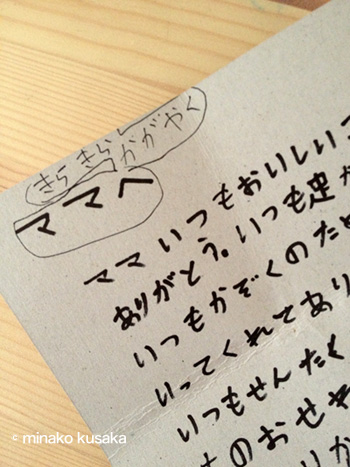 きらきら
かがやく
ママへ
ママ いつもおいしい
ありがとう。いつも
いつもかぞくのため
いってくれてあり
いつもせんたく
のおせわ
© minako kusaka